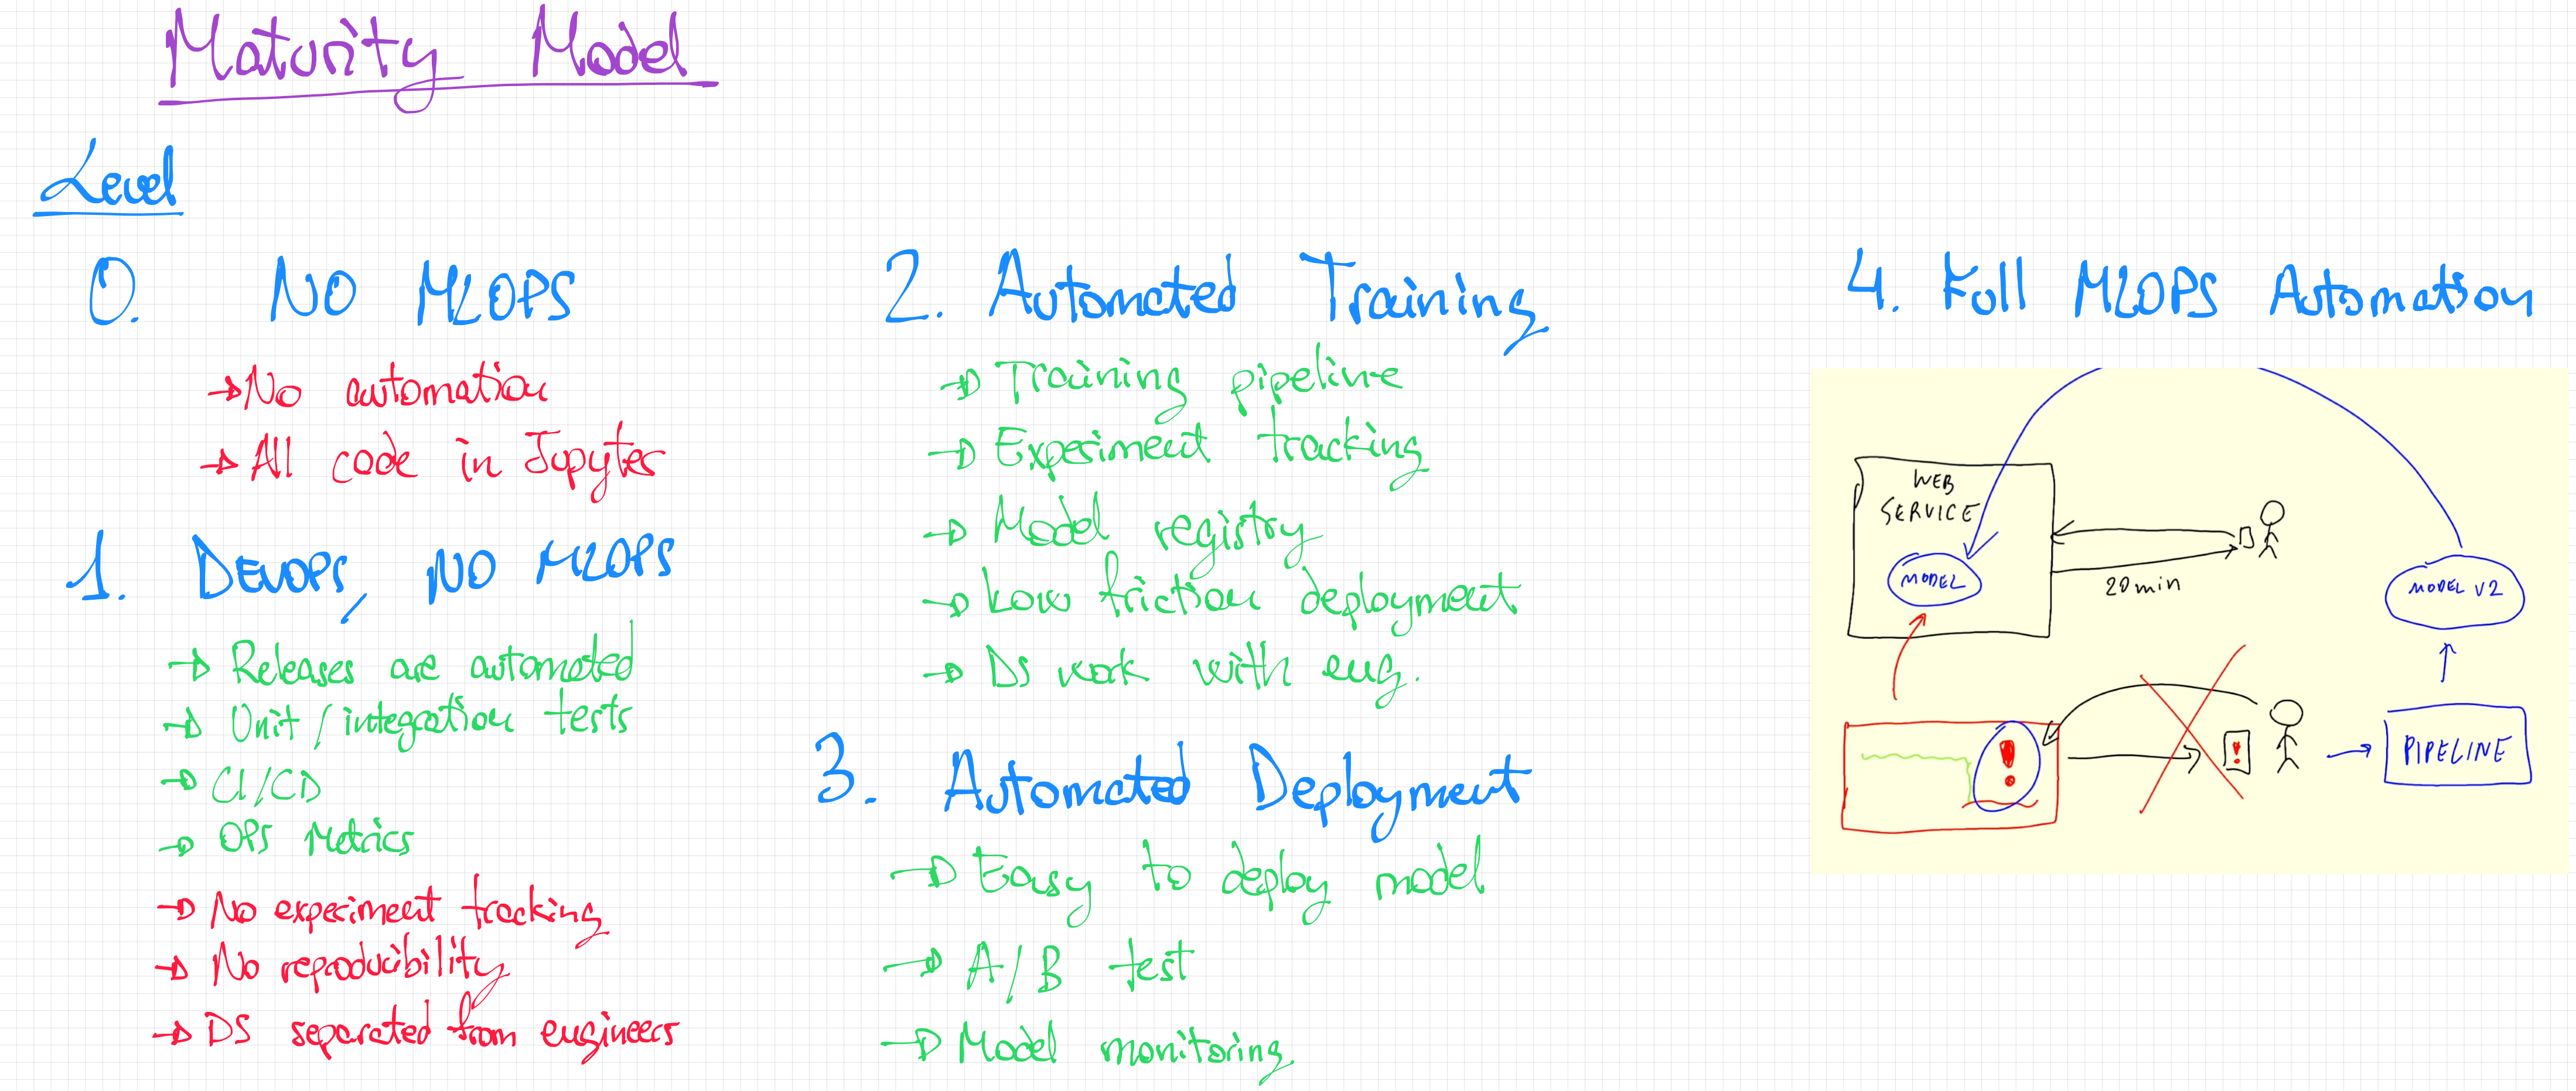 Maturity Model
Level
0. NO MLOPS
→ No automation
→ All code in Jupyter
1. DEVOPS, NO MLOPS
→ Releases are automated
→ Unit / integration tests
→ CI/CD
→ OPS Metrics
→ No experiment tracking
→ No reproducibility
→ DS separated from engineers
2. Automated Training
→ Training pipeline
→ Experiment tracking
→ Model registry
→ Low friction deployment
→ DS work with eng.
3. Automated Deployment
→ Easy to deploy model
→ A/B test
→ Model monitoring
4. Full MLOPS Automation
WEB
SERVICE
MODEL
20 min
MODEL V2
!
!
PIPELINE